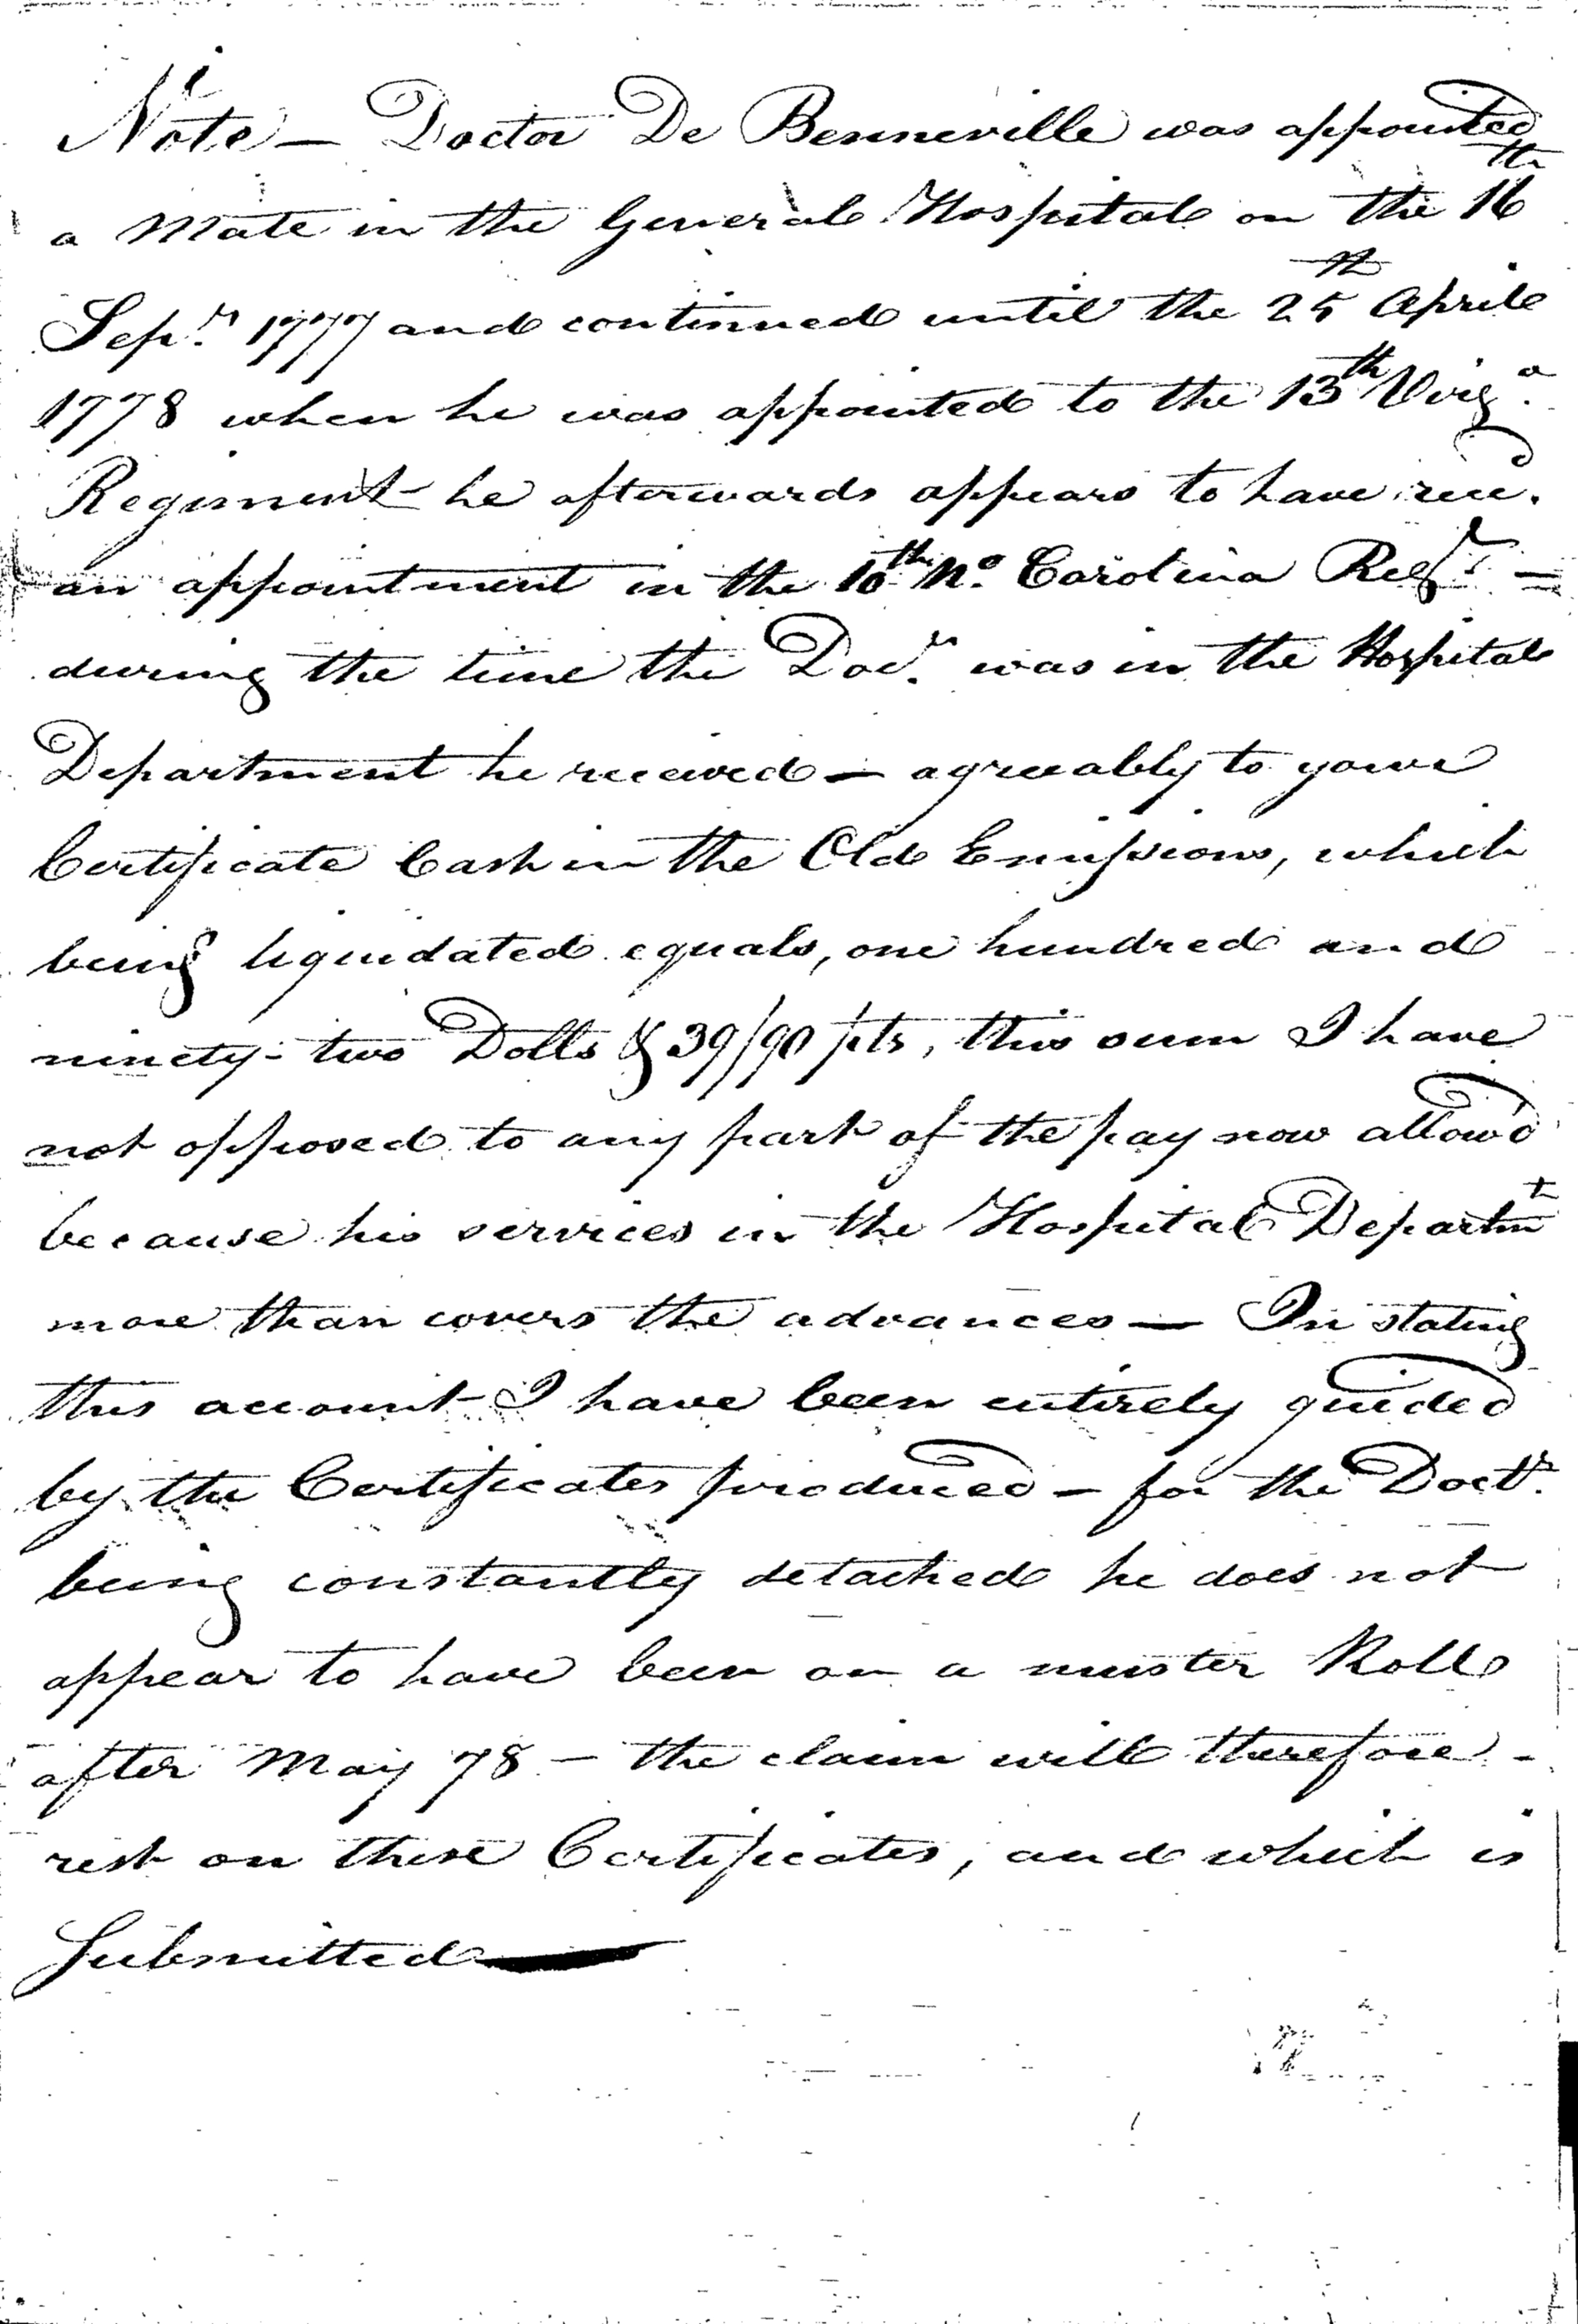 Note — Doctor De Benneville was appointed
a Mate in the General Hospital on the 16th
Sepr. 1777 and continued until the 25th April
1778 when he was appointed to the 13th Virga.
Regiment — he afterwards appears to have recd.
an appointment in the 10th No. Carolina Regt. —
during the time the Docr. was in the Hospital
Department he received — agreeably to your
Certificate Cash in the Old Emissions, which
being liquidated equals, one hundred and
ninety-two Dolls & 39/90 pts, this sum I have
not opposed to any part of the pay now allow'd
because his services in the Hospital Departmt
more than covers the advances — In stating
this account I have been entirely guided
by the Certificates produced — for the Doctr.
being constantly detached he does not
appear to have been on a muster Roll
after May 78 — the claim will therefore -
rest on these Certificates, and which is
Submitted —